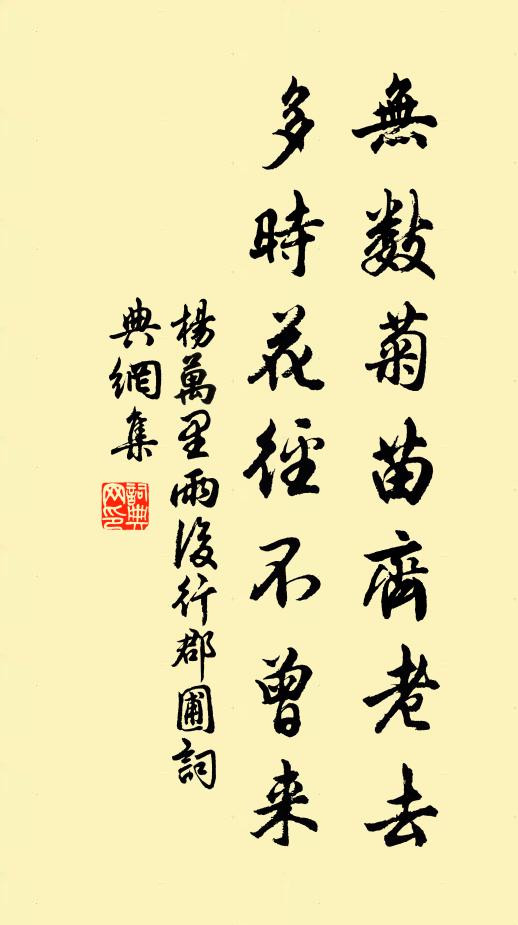 無数菊苗齊老去
多時花徑不曽来
楊萬里雨後行郡圃詞
典網集
詞典网印